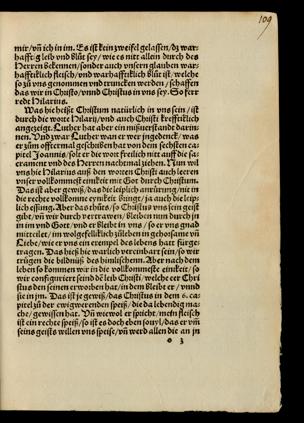 109
mir/vñ ich in im. Es ist kein zweifel gelassen/dz war
hafft:g leib vnd blůt sey/wie es nitt allein durch des
Herren bekennen/sonder auch vnsern glauben war
hafftiklich fleisch/vnd warhafftiklich blůt ist/welche
so zů vns genommen vnd truncken werden/schaffen
das wir in Christo/vnnd Christus in vns sey. So ferr
redt Hilarius.
Was hie heisse Christum natürlich in vns sein/ist
durch die wort Hilarij/vnd auch Christi krefftiklich
angezeigt. Luther hat aber ein mißuerstande darin
nen. Vnd zwar Luther wan er wer ingedenck/was
er zům offtermal geschriben hat von dem sechsten ca
pitel Joannis/solt er die wort freilich nitt auff die sa
crament vnd des Herren nachtmal ziehen. Nun wil
vns hie Hilarius auß den worten Christi auch leeren
vnser vollkommest einikeit mit Got durch Christum.
Das ist aber gewiß/das die leiplich anrürung/nit in
die rechte vollkomne eynikeit bringt/ja auch die leip
lich essing. Aber das thůts/so Christus vns sein geist
gibt/vñ wir durch vertrawen/bleiben nun durch jn
in im vnd Gott/vnd er bleibt in vns/so er vns gnad
mitteilet/im wolgefelliklich zůleben in ghorsame vñ
Liebe/wie er vns ein exempel des lebens hatt fürge
tragen. Das hieß hie warlich vereinbart sein/so wir
trügen die bildnüß des himlischen. Aber nach dem
leben so kommen wir in die vollkommeste einikeit/so
wir configuriert seind dē leib Christi/welche eer Chri
stus den seinen erworben hat/in dem bleibt er/vnnd
sie in jm. Das ist je gewiß/das Christus in dem 6. ca
pitel zů der ewigwerenden speiß/die da lebendig ma
che/gewissen hat. Vñ wiewol er spricht/mein fleisch
ist ein rechte speiß/so ist es doch eben souyl/das er vñ
seins geists willen vns speise/vñ werd allein die an jn
o 3